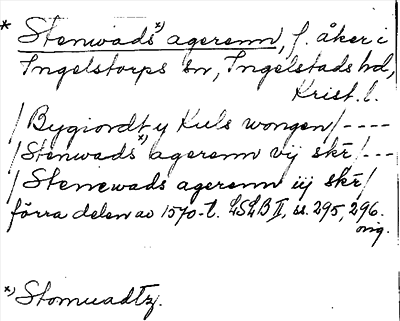 * Stenwads x) agerenn, f. åker i
Ingelstorps sn, Ingelstads hd,
Krist. l.
/Bygiordt y Kuls wongen/----
/Stenwads x) agerenn vij skr/---
/Stenewads agerenn iij skr/
förra delen av 1570-t. LSLB II, ss. 295, 296.
orig.
x) Stomuadtz.